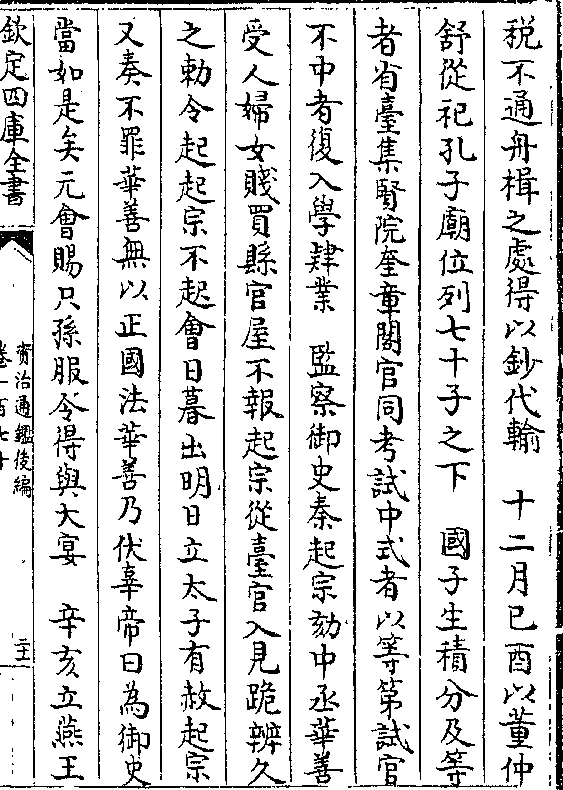 税不通舟楫之處得以鈔代輸　十二月己酉以董仲
舒從祀孔子廟位列七十子之下　國子生積分及等
者省臺集賢院奎章閣官同考試中式者以等第試官
不中者復入學肄業　監察御史秦起宗劾中丞華善
受人婦女賤買縣官屋不報起宗從臺官入見跪辨久
之勅令起起宗不起會日暮出明日立太子有赦起宗
又奏不罪華善無以正國法華善乃伏辜帝曰為御史
當如是矣元會賜只孫服令得與大宴　辛亥立燕王
欽定四庫全書
資治通鑑後編
卷一百七十